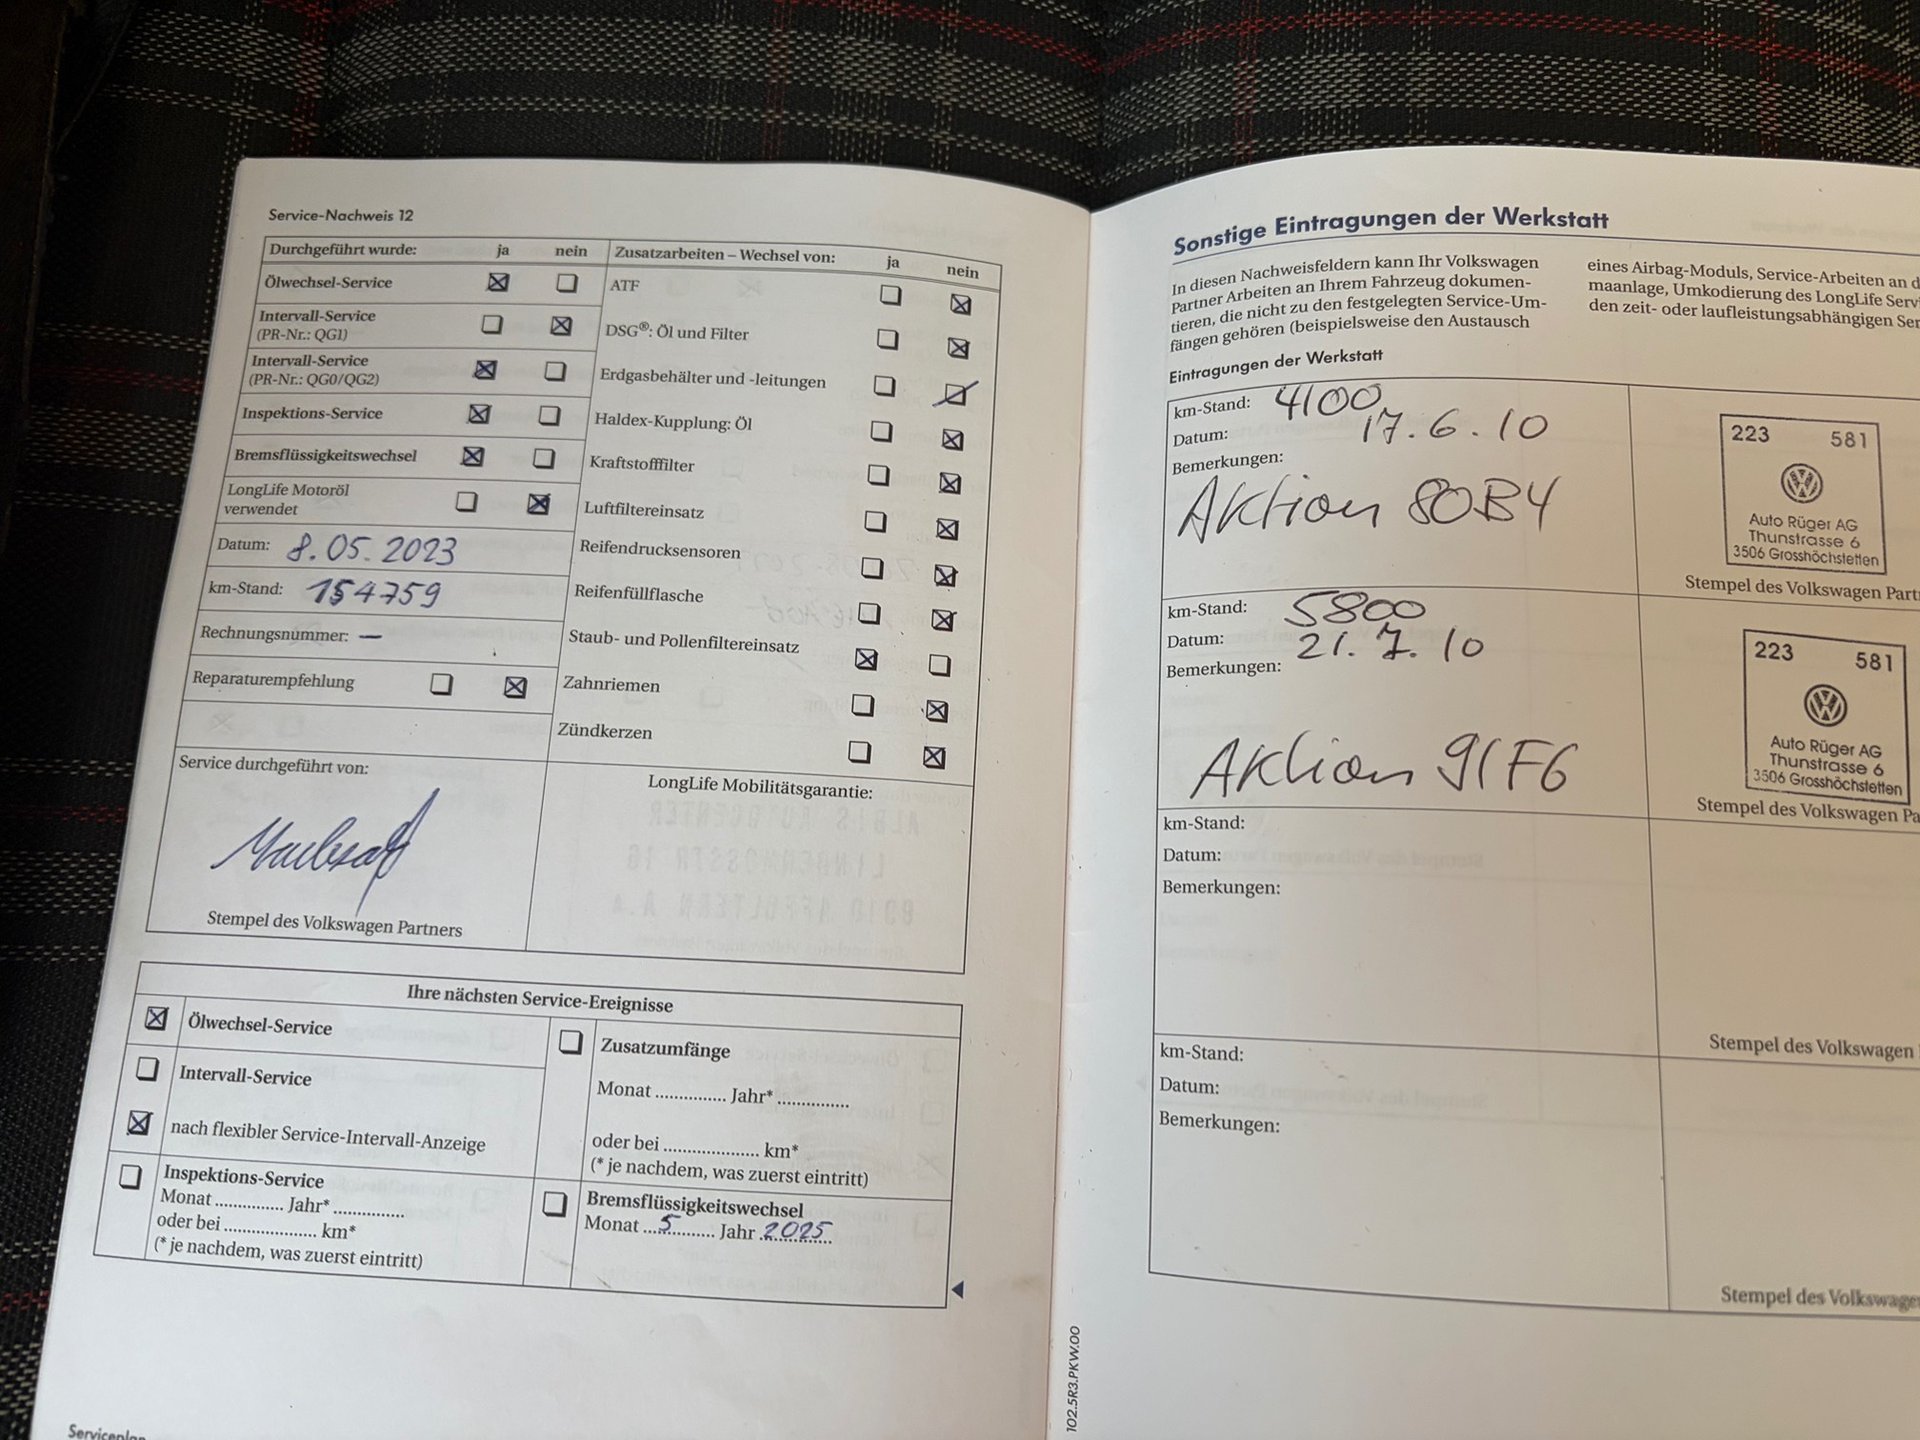 Service-Nachweis 12
Durchgeführt wurde: ja nein
Ölwechsel-Service
Intervall-Service
(PR-Nr.: QG1)
Intervall-Service
(PR-Nr.: QG0/QG2)
Inspektions-Service
Bremsflüssigkeitswechsel
LongLife Motoröl
verwendet
Datum: 8.05.2023
km-Stand: 154759
Rechnungsnummer: —
Reparaturempfehlung
Zusatzarbeiten – Wechsel von: ja nein
ATF
DSG®: Öl und Filter
Erdgasbehälter und -leitungen
Haldex-Kupplung: Öl
Kraftstofffilter
Luftfiltereinsatz
Reifendrucksensoren
Reifenfüllflasche
Staub- und Pollenfiltereinsatz
Zahnriemen
Zündkerzen
Service durchgeführt von:
Stempel des Volkswagen Partners
LongLife Mobilitätsgarantie:
Ihre nächsten Service-Ereignisse
Ölwechsel-Service
Intervall-Service
nach flexibler Service-Intervall-Anzeige
Inspektions-Service
Monat .............. Jahr* ..............
oder bei .................. km*
(* je nachdem, was zuerst eintritt)
Zusatzumfänge
Monat .............. Jahr* ..............
oder bei .................... km*
(* je nachdem, was zuerst eintritt)
Bremsflüssigkeitswechsel
Monat ...5.......... Jahr 2025
Serviceplan
Sonstige Eintragungen der Werkstatt
In diesen Nachweisfeldern kann Ihr Volkswagen
Partner Arbeiten an Ihrem Fahrzeug dokumen-
tieren, die nicht zu den festgelegten Service-Um-
fängen gehören (beispielsweise den Austausch
eines Airbag-Moduls, Service-Arbeiten an
maanlage, Umkodierung des LongLife
den zeit- oder laufleistungsabhängigen
Eintragungen der Werkstatt
km-Stand: 4100
Datum: 17.6.10
Bemerkungen:
Aktion 80B4
223 581
Auto Rüger AG
Thunstrasse 6
3506 Grosshöchstetten
Stempel des Volkswagen
km-Stand: 5800
Datum: 21.7.10
Bemerkungen:
Aktion 91F6
223 581
Auto Rüger AG
Thunstrasse 6
3506 Grosshöchstetten
Stempel des Volkswagen
km-Stand:
Datum:
Bemerkungen:
Stempel des Volkswagen
km-Stand:
Datum:
Bemerkungen:
Stempel des Volkswagen
102.5R3.PKW.00